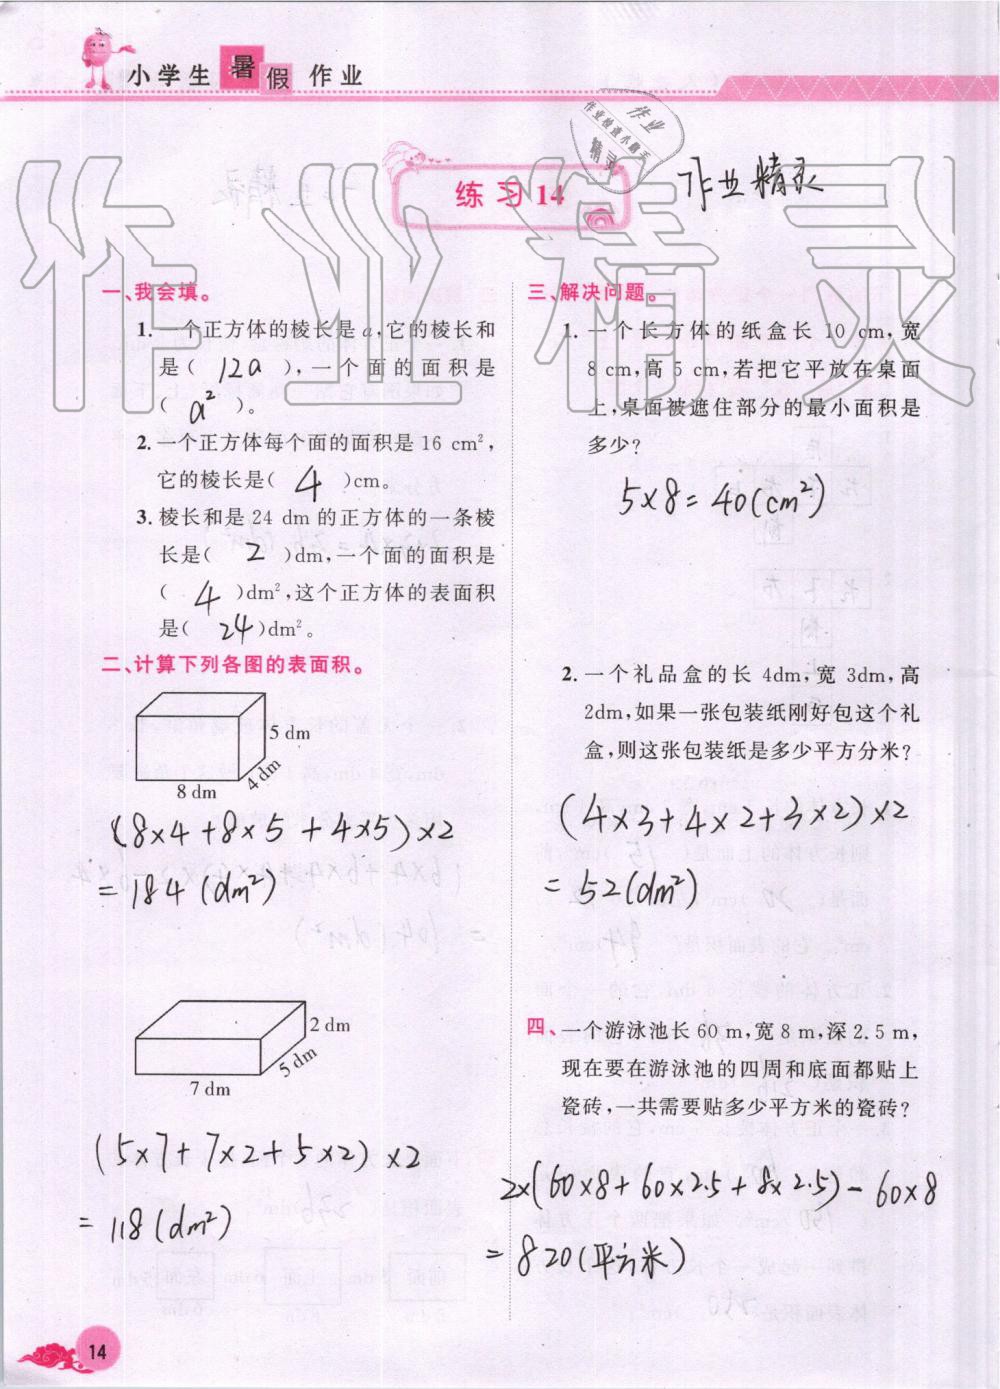 小学生暑假作业
作业
作业检查小助手
精灵
练习14
作业精灵
作业精灵
一、我会填。
1. 一个正方体的棱长是a,它的棱长和
是( 12a ),一个面的面积是
( a² )。
2. 一个正方体每个面的面积是16 cm²,
它的棱长是( 4 )cm。
3. 棱长和是24 dm的正方体的一条棱
长是( 2 )dm,一个面的面积是
( 4 )dm²,这个正方体的表面积
是( 24 )dm²。
二、计算下列各图的表面积。
5 dm
4 dm
8 dm
(8×4+8×5+4×5)×2
=184(dm²)
2 dm
5 dm
7 dm
(5×7+7×2+5×2)×2
=118(dm²)
三、解决问题。
1. 一个长方体的纸盒长10 cm,宽
8 cm,高5 cm,若把它平放在桌面
上,桌面被遮住部分的最小面积是
多少?
5×8=40(cm²)
2. 一个礼品盒的长4dm,宽3dm,高
2dm,如果一张包装纸刚好包这个礼
盒,则这张包装纸是多少平方分米?
(4×3+4×2+3×2)×2
=52(dm²)
四、一个游泳池长60 m,宽8 m,深2.5 m,
现在要在游泳池的四周和底面都贴上
瓷砖,一共需要贴多少平方米的瓷砖?
2×(60×8+60×2.5+8×2.5)-60×8
=820(平方米)
14